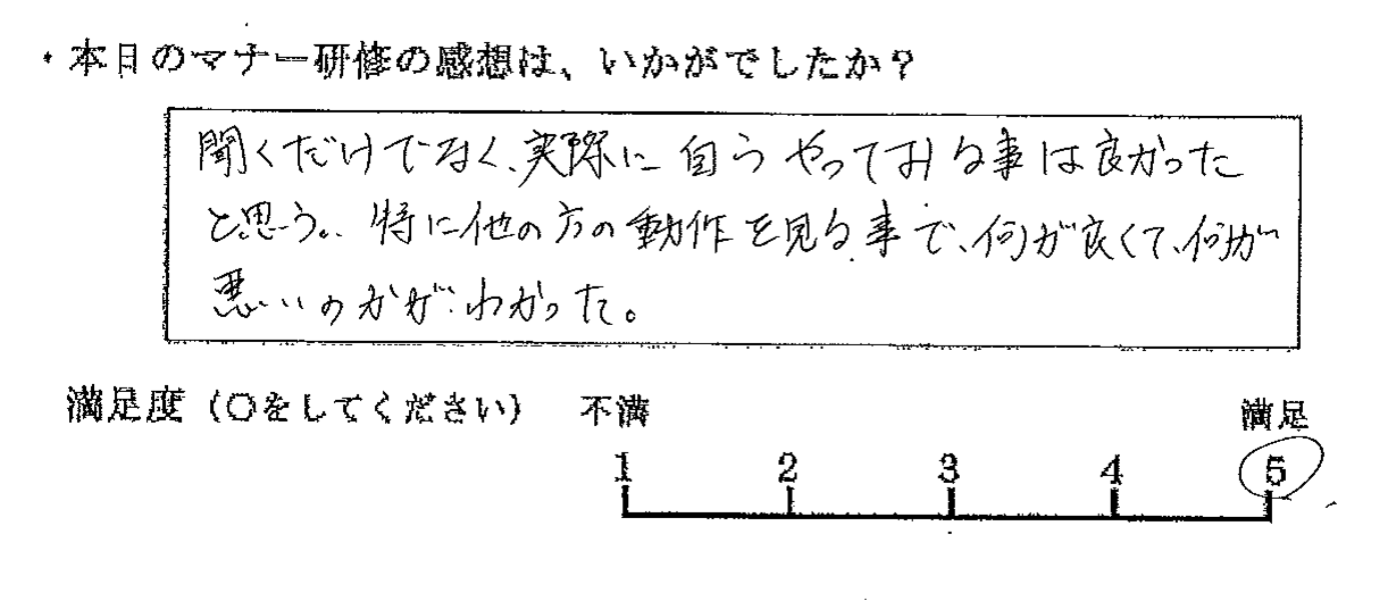 ・本日のマナー研修の感想は、いかがでしたか？
聞くだけでなく、実際に自らやっておる事は良かった
と思う。特に他の方の動作を見る事で、何が良くて、何が
悪いのかがわかった。
満足度（○をしてください） 不満 満足
1 2 3 4 5